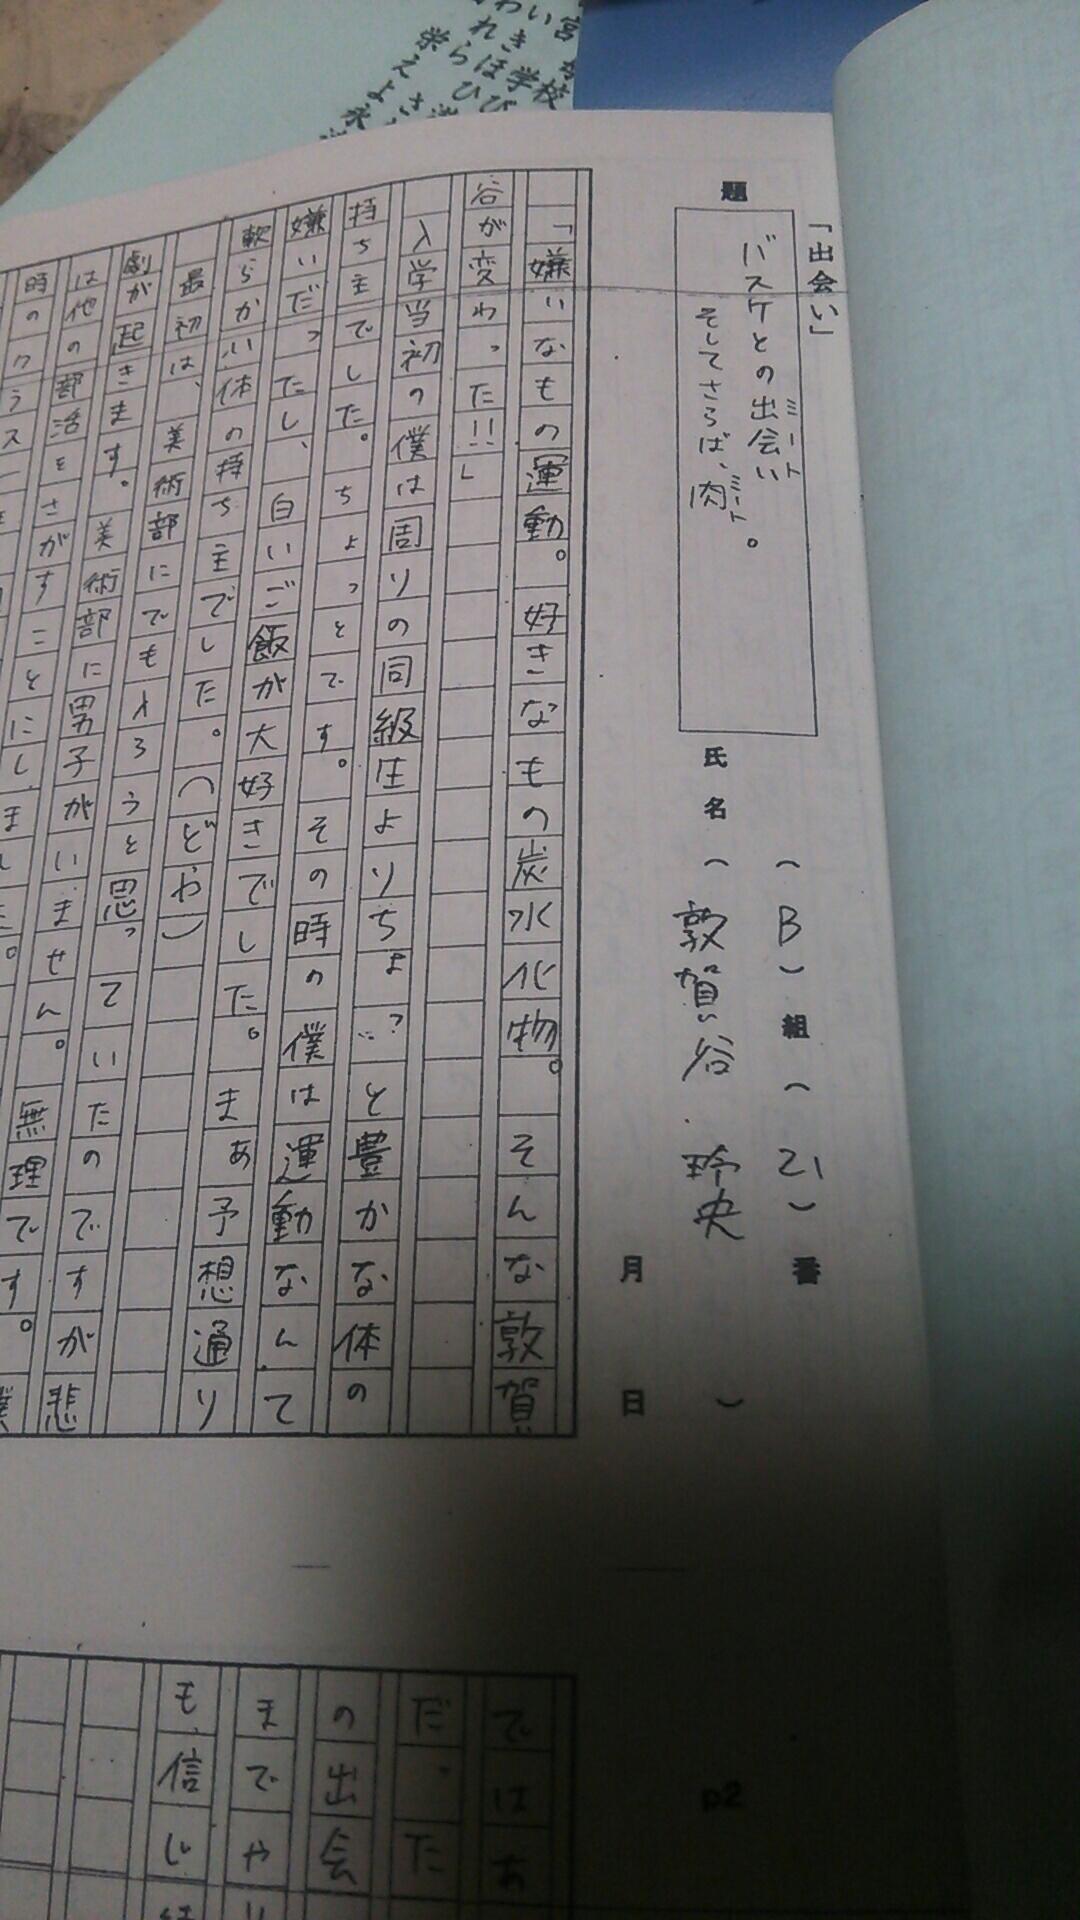 「出会い」
題
バスケとの出会い
ミート
そしてさらば、肉。
ミート
(B)組(21)番
氏名(敦賀谷 玲央)
月 日
「嫌いなもの運動。好きなもの炭水化物。そんな敦賀
谷が変わった!!」
入学当初の僕は周りの同級生よりちょ…?と豊かな体の
持ち主でした。ちょっとです。その時の僕は運動なんて
嫌いだったし、白いご飯が大好きでした。まあ予想通り
軟らかい体の持ち主でした。(どや)
最初は、美術部にでも入ろうと思っていたのですが悲
劇が起きます。美術部に男子がいません。無理です。僕
は他の部活をさがすことにしました。
時のクラス
ではあ
だ。た
の出会
までや
も、信じ
p2
学校